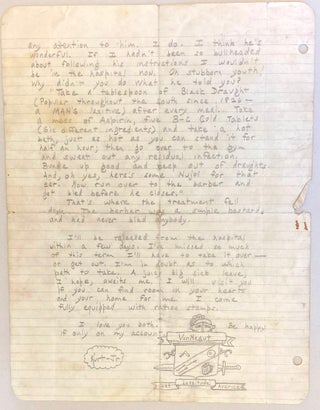 any attention to him. I do. I think he's
wonderful. If I hadn't been so bullheaded
about following his instructions I wouldn't
be in the hospital now. Oh stubborn youth,
why didn't you do what he told you?
"Take a tablespoon of Black Draught
(Popular throughout the South since 1826 —
a MAN'S laxitive) after every meal. Take
a mess of Aspirin, five Bnc Gold Tablets
(Six different ingredients) and take a hot
bath, just as hot as you can stand it for
half an hour; then go over to the gym
and sweat out any residual infection.
Bundle up good and beware of draughts.
And, oh yes, here's some Nujol for that
ear. Now run over to the barber and
get bled before he closes."
That's where the treatment fell
down. The barber was a simple bastard,
and he'd never bled anybody.
I'll be released from the hospital
within a few days. I've missed so much
of this term I'll have to take it over —
or get out. I'm in doubt as to which
path to take. A juicy big sick leave,
I hope, awaits me. I will visit you
if you can find room in your hearts
and your home for me. I come
fully equipped with ration stamps.
I love you both. Be happy
if only on my account.
Kurt - Jr.
VONNEGUT